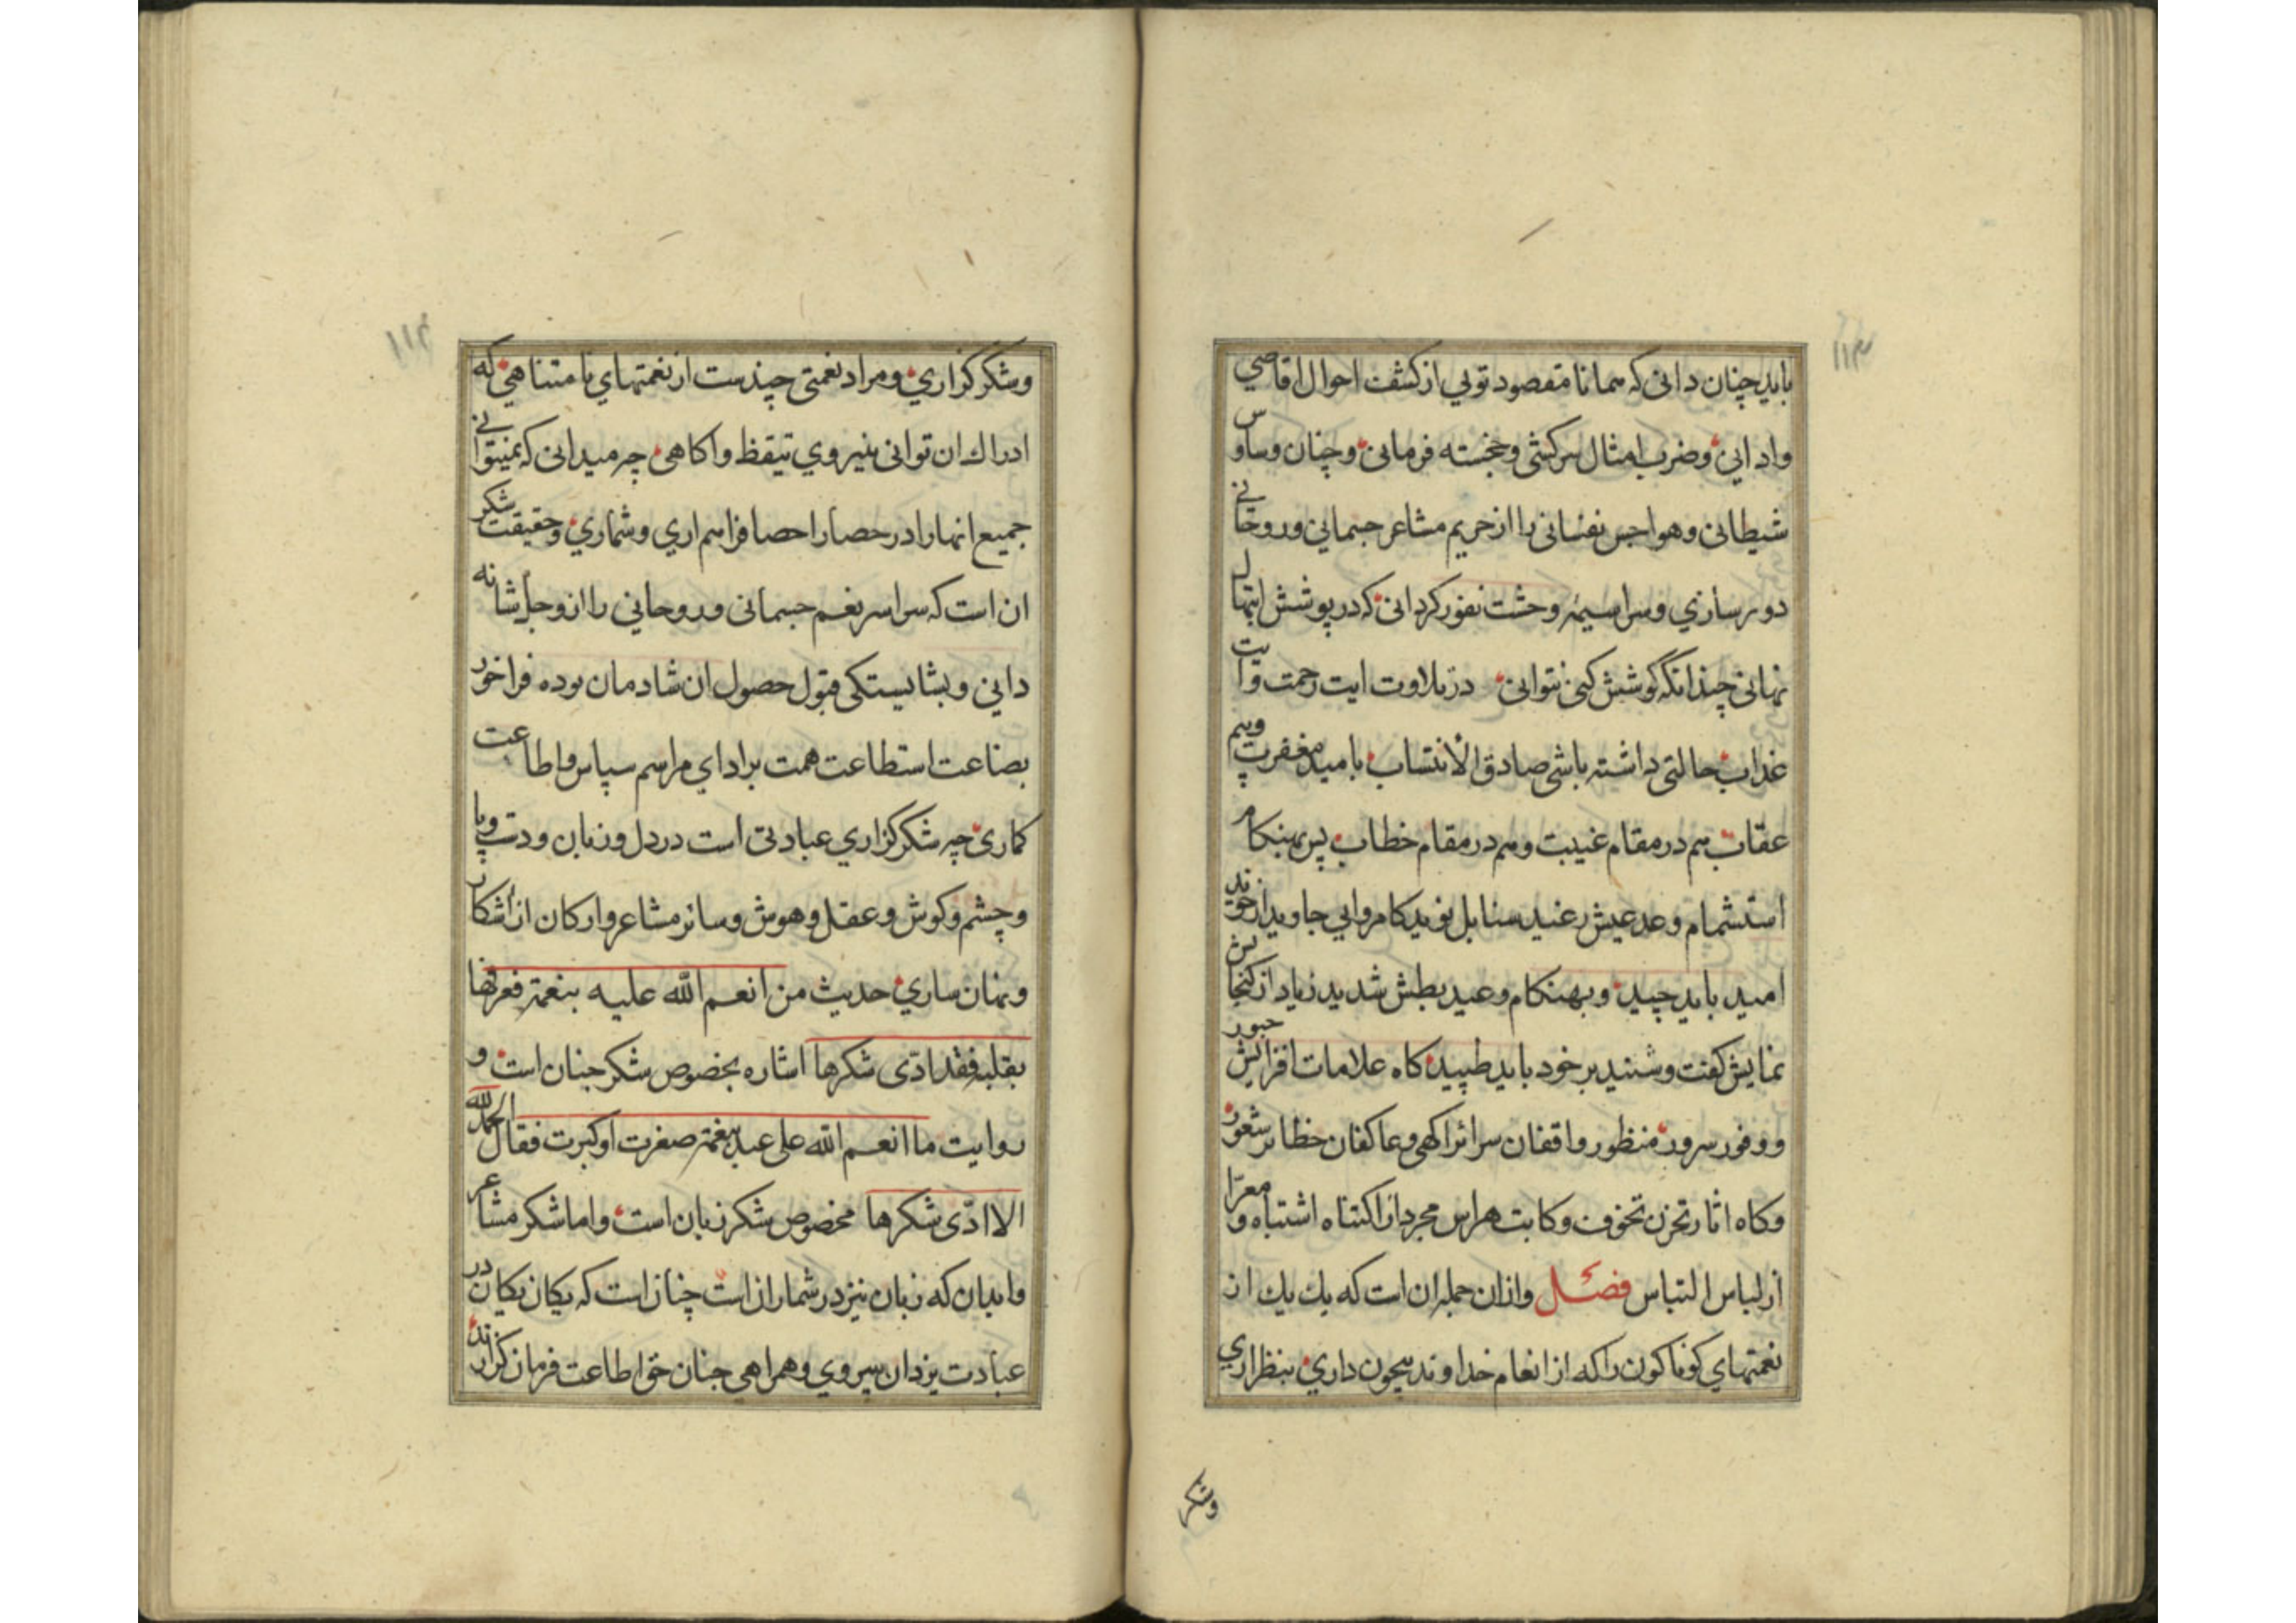 ۱۱۳
باید چنان دانی که همانا مقصود تویی از کشف احوال اقاصی
وادانی و ضرب امثال سرکشی و خجسته فرمانی و چنان وساوس
شیطانی و هواجس نفسانی را از حریم مشاعر جسمانی و روحانی
دور سازی و سراسیمهٔ وحشت نفور کردانی که در پوشش ابتهال
نهانی چندانکه کوشش کنی نتوانی در تلاوت ایت رحمت و ایت
عذاب حالتی داشته باشی صادق الانتساب بامید مغفرت و بیم
عقاب هم در مقام غیبت و هم در مقام خطاب پس بهنکام
استشمام وعد عیش رغید سنابل نوید کامروایی جاوید از خوند
امید باید چید و بهنکام وعید بطش شدید زیاد از کنجایش
نمایش کفت و شنید بر خود باید طپید کاه علامات افزایش حبور
و وفور سرور منظور واقفان سرائر اکهی و عاکفان حظائر شعور
و کاه اثار تحزن تخوف و کابت هراس مجرد از اکتناه اشتباه و معرا
از لباس التباس فصل و از ان جمله ان است که یك یك از
نعمتهای کوناکون را که از انعام خداوند بیچون داری بنظر اری
وشکر
۱۱۴
وشکر کزاری و مراد نعمتی چندست از نعمتهای نا متناهی که
ادراك ان توانی بنیروی تیقظ و اکاهی چه میدانی که نمیتوانی
جمیع انها را در حصار احصا فراهم اری و شماری و حقیقت شکر
ان است که سراسر نعم جسمانی و روحانی را از و جل شانه
دانی و بشایستکی قبول حصول ان شادمان بوده فراخور
بضاعت استطاعت همت بر ادای مراسم سپاس و اطاعت
کماری چه شکر کزاری عبادتی است در دل و زبان و دست و پا
و چشم و کوش و عقل و هوش و سائر مشاعر و ارکان از اشکار
و نهان ساری حدیث من انعم الله علیه بنعمة فعرفها
بقلبه فقد ادّی شکرها اشاره بخصوص شکر جنان است و
روایت ما انعم الله علی عبد بنعمة صغرت او کبرت فقال الحمد لله
الا ادّی شکرها مخصوص شکر زبان است و اما شکر مشاعر
و ابدان که زبان نیز در شمار ان است چنان است که یکان یکان در
عبادت یزدان بپیروی و همراهی جنان حق اطاعت فرمان کزارند